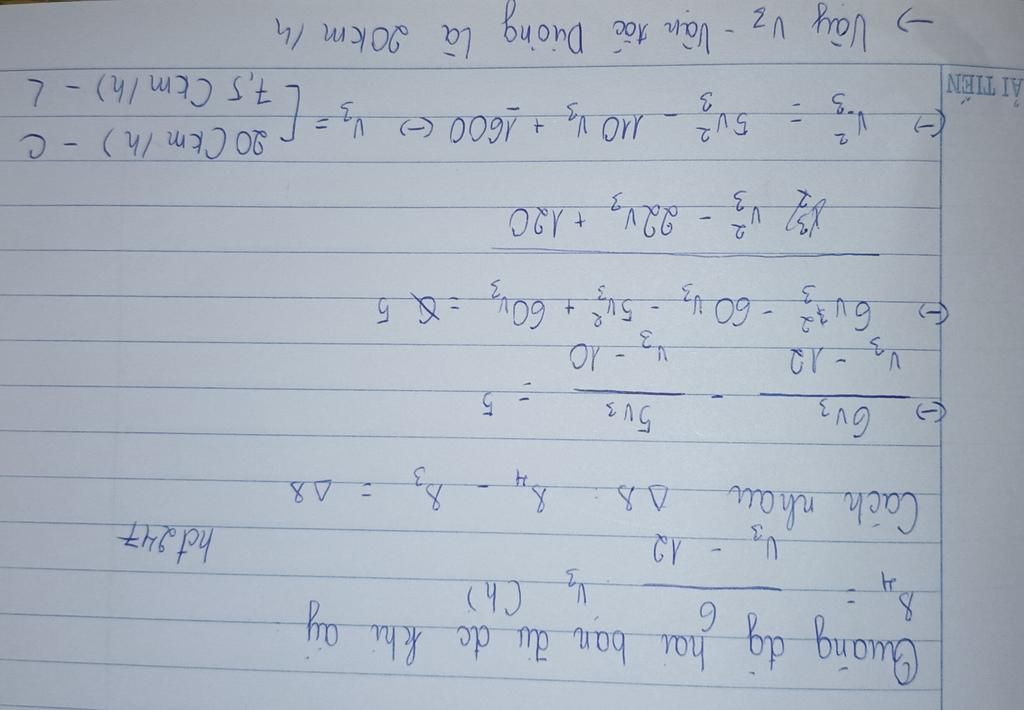 Quãng đg hai bạn đi đc khi ấy
s₄ = 6 / (v₃ - 12) v₃ (h)
hdt247
Cách nhau Δs: s₄ - s₃ = Δs
(-) 6v₃ / (v₃ - 12) - 5v₃ / (v₃ - 10) = 5
(-) 6v₃² - 60v₃ - 5v₃² + 60v₃ = 5
v₃² - 22v₃ + 120
(-) v₃² = 5v₃² - 110v₃ + 1600 (-) v₃ = [ 20 (km/h) - C
7,5 (km/h) - L
ẢI TIẾN
-> Vậy v₃ - Vận tốc Dương là 20km/h